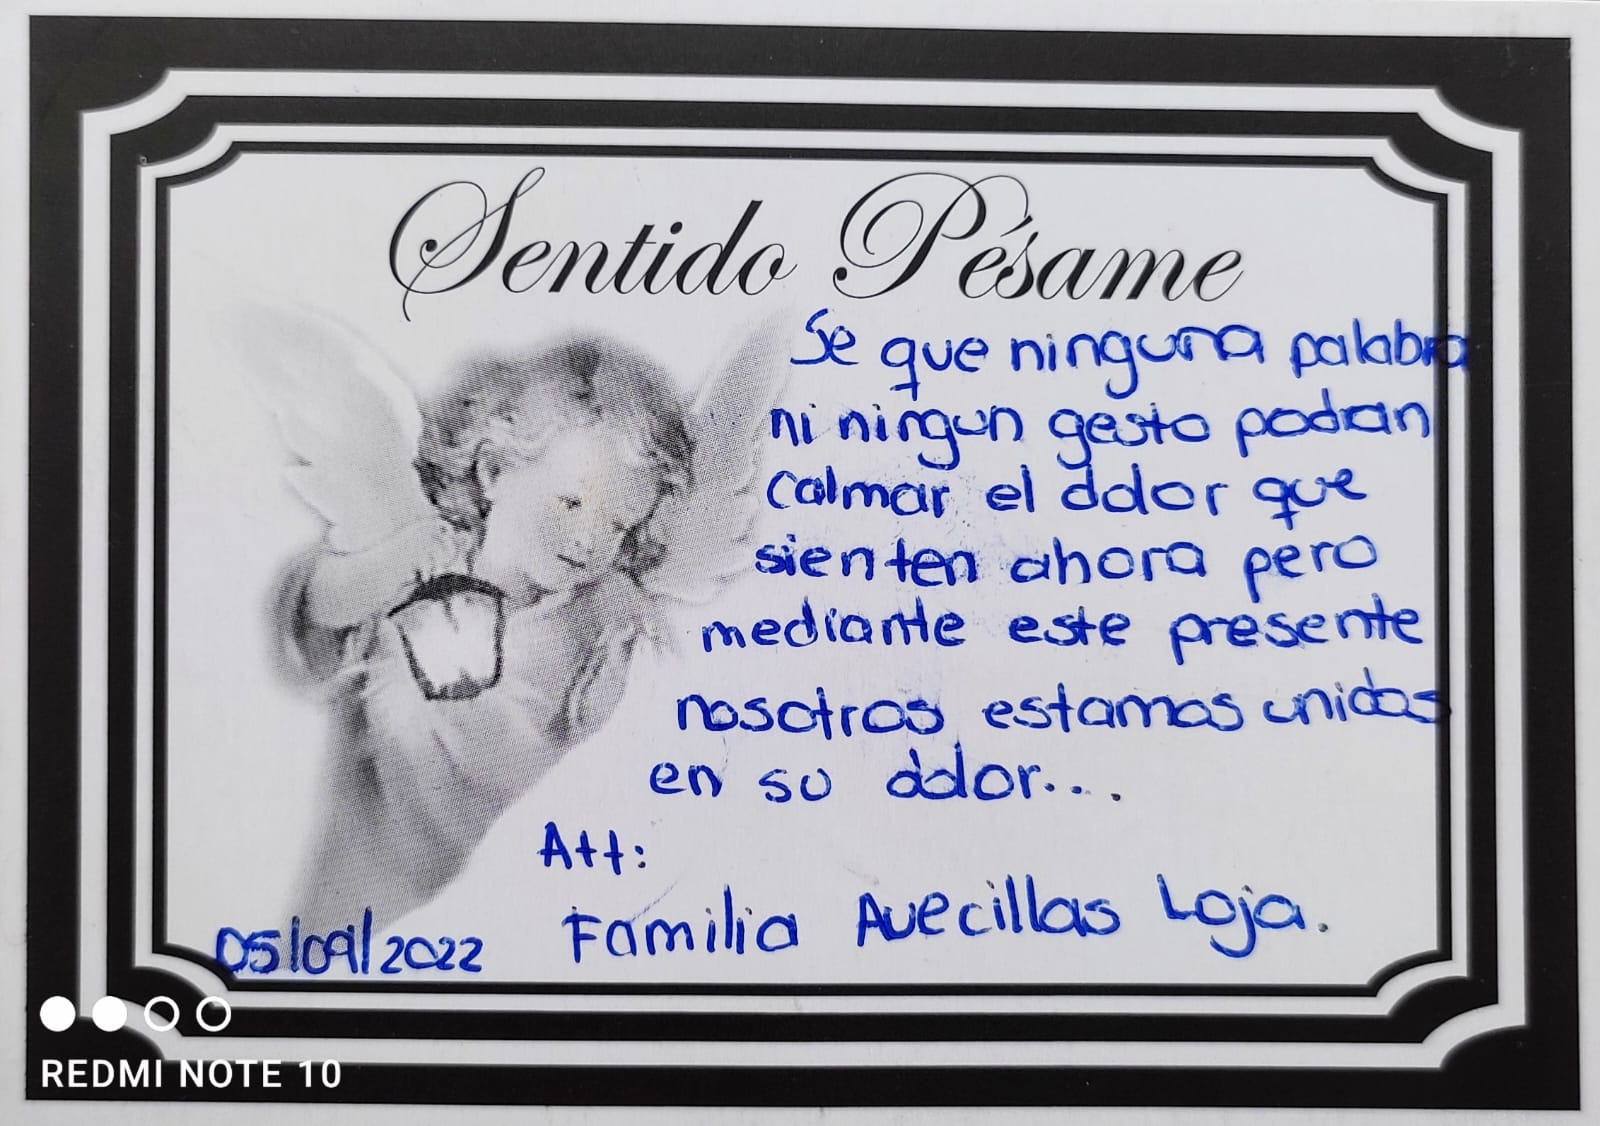 Sentido Pésame
Se que ninguna palabra
ni ningun gesto podran
calmar el dolor que
sienten ahora pero
mediante este presente
nosotros estamos unidos
en su dolor...
Att:
Familia Avecillas Loja.
05/09/2022
REDMI NOTE 10